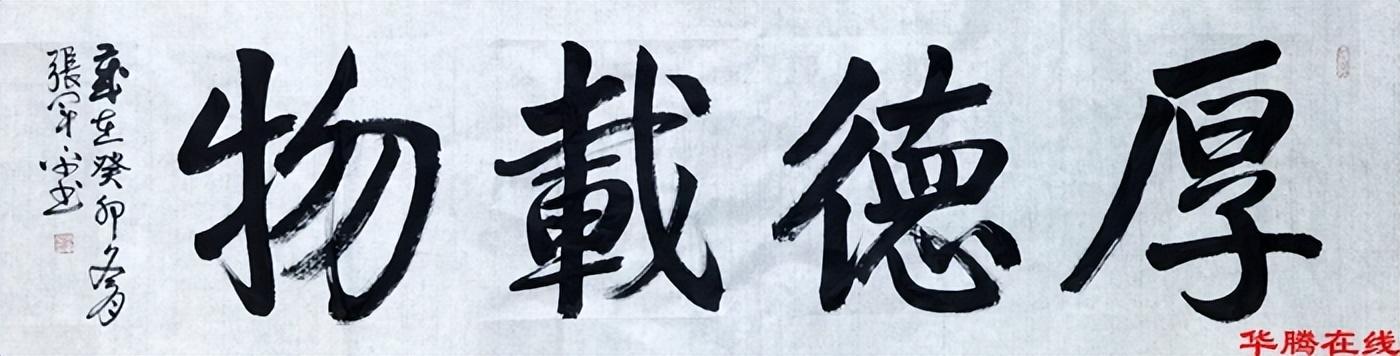 厚德載物
歲在癸卯冬月
張軍书
华腾在线